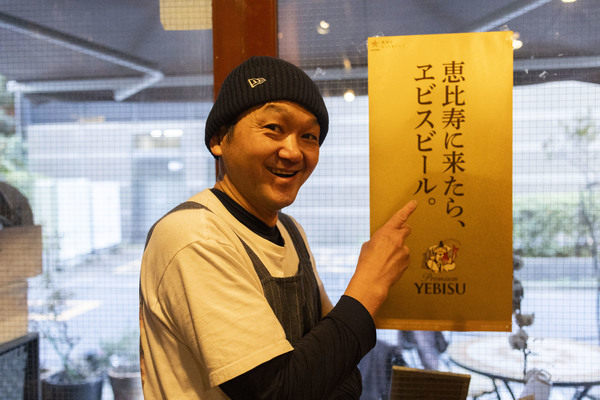 恵比寿に来たら、
ヱビスビール。
Premium
YEBISU